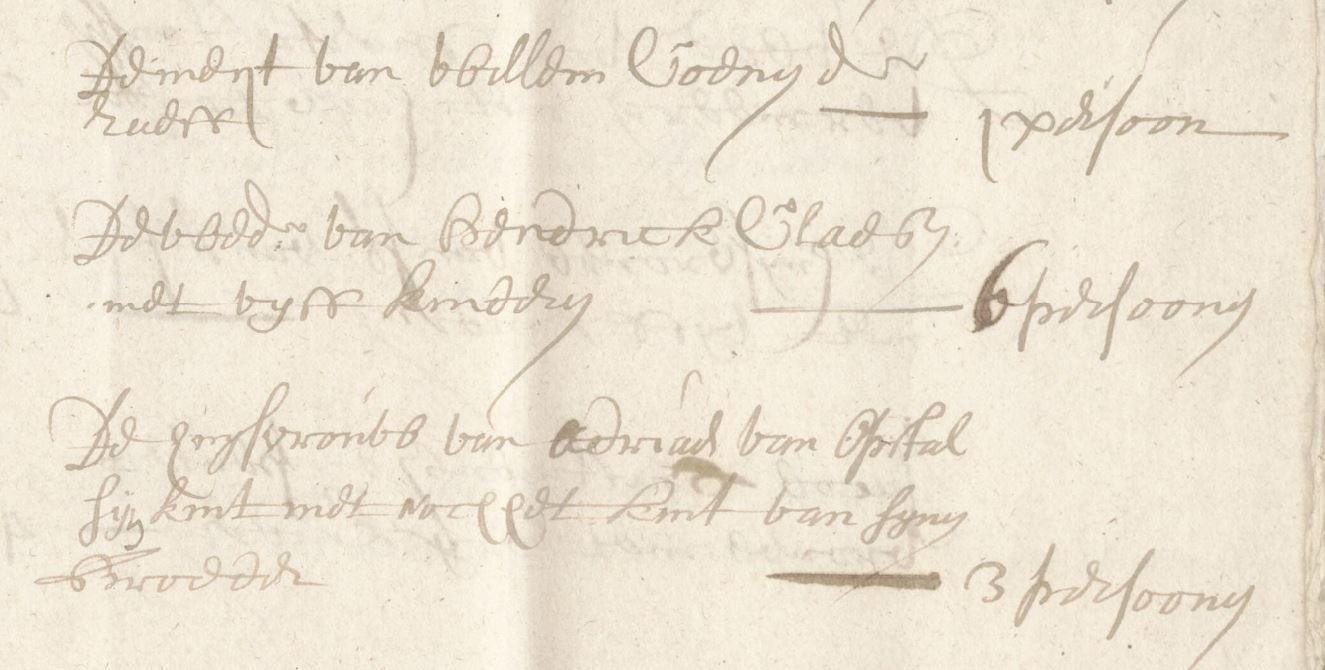 De meyt van Willem Coeny de
1 persoon
De wede van Hendrick Claes
met vyff kinderen 6 persoonen
De huysvrouwe van Adriaen van Spital
syn kint met noch het kint van synen
broeder 3 persoonen